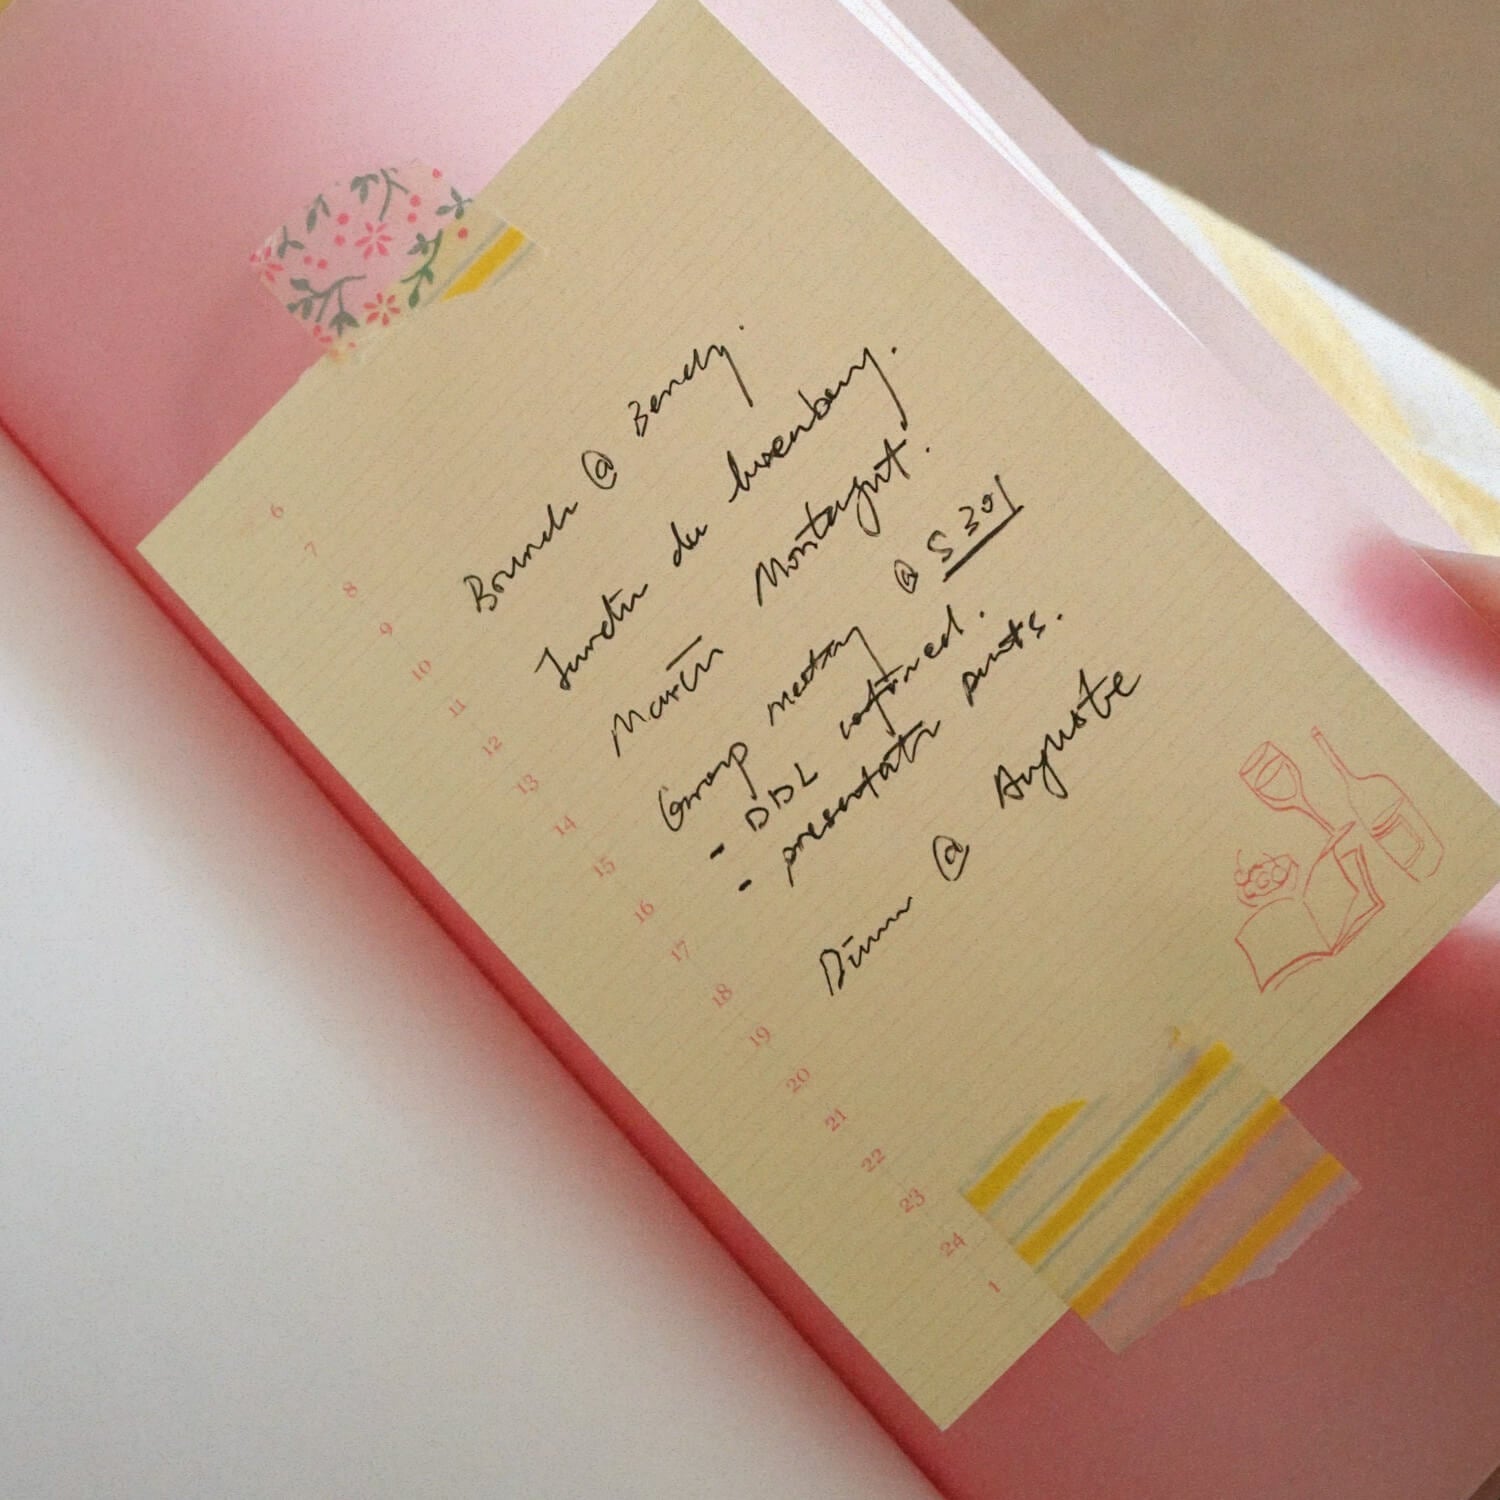 6
7
8
9
10 Brunch @ Bendy.
11
12 Jardin du Luxembourg.
13
14 Martin Montagut.
15
16 Group meeting @ S301
17 - DDL confirmed.
18 - presentatn points.
19
20 Dinner @ Auguste
21
22
23
24
1